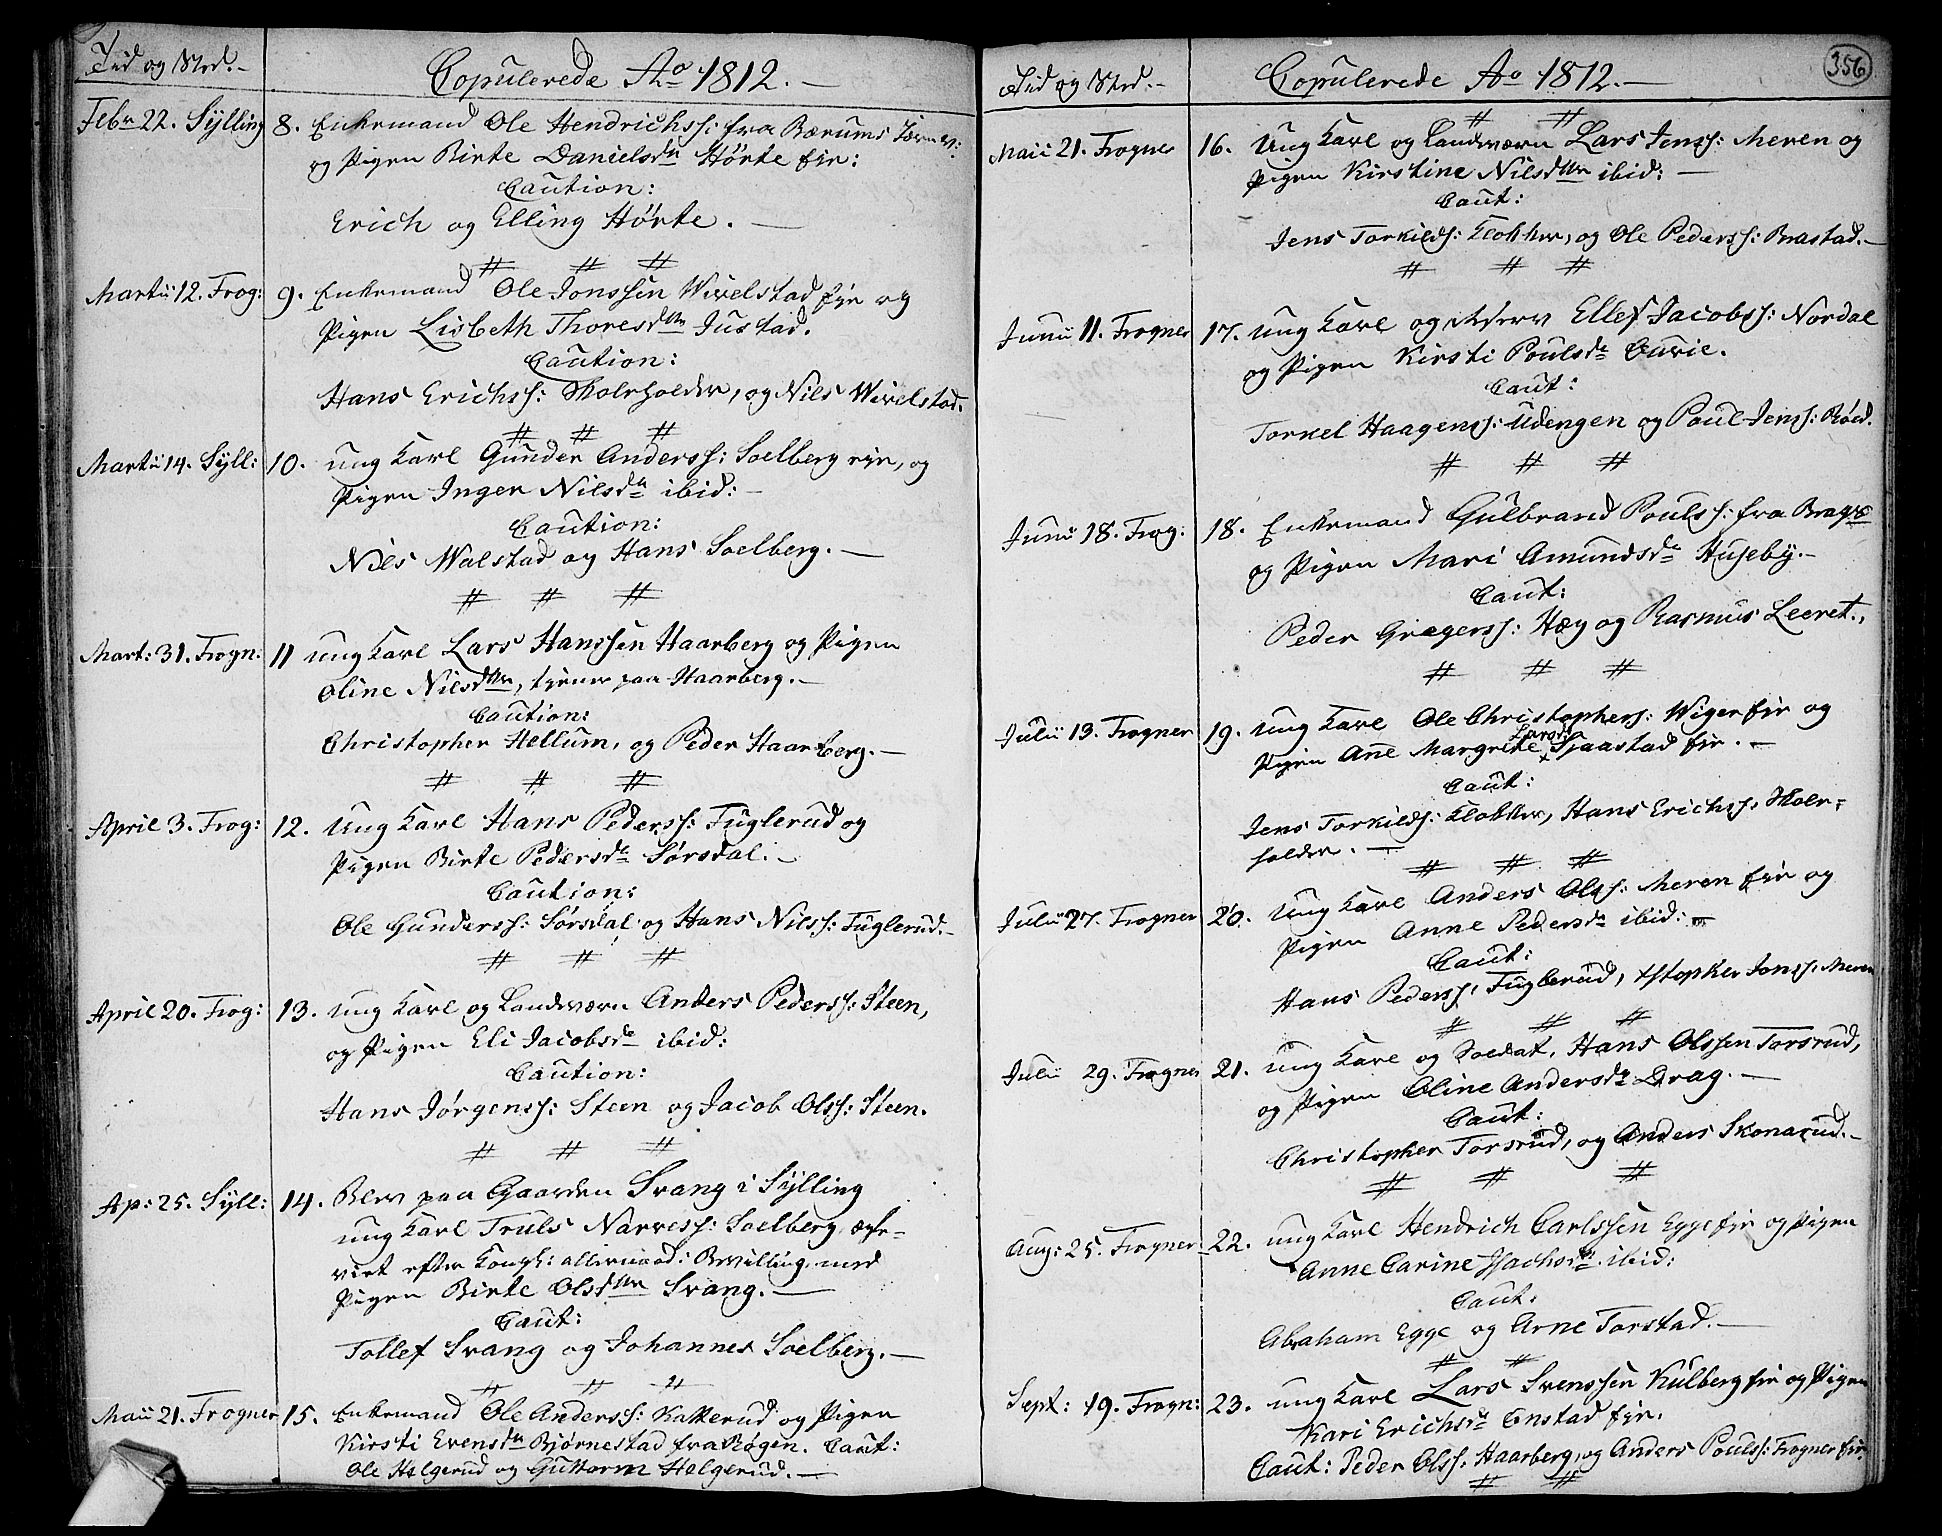 Tid og Sted.
Copulerede Ao 1812.
Febr 22. Sÿlling 8. Enkemand Ole Hendrichss: fra Bærums
og Pigen Birte Danielsdr Hörte eje:
Caution:
Erich og Elling Hörte.
Martii 12. Frog: 9. Enkemand Ole Jonssen Wivelstad eje og
Pigen Lisbeth Thoresdtter Justad.
Caution:
Hans Erichss: Skoleholder, og Nils Wivelstad.
Martii 14. Sÿll: 10. ung Karl Gunder Anderss: Soelberg eje, og
Pigen Inger Nilsdr ibid:
Caution:
Niels Walstad og Hans Soelberg.
Mart: 31. Frogn: 11 ung Karl Lars Hanssen Haarberg og Pigen
Oline Nilsdtter, tjener paa Haarberg.
Caution:
Christopher Hellum, og Peder Haarberg.
April 3. Frog: 12. Ung Karl Hans Pederss: Fuglerud og
Pigen Birte Pedersdr Sörsdal.
Caution:
Ole Gunderss: Sörsdal og Hans Nilss: Fuglerud.
April 20. Frog: 13. ung Karl og Landværn Anders Pederss: Steen,
og Pigen Eli Jacobsdr ibid:
Caution:
Hans Jörgenss: Steen og Jacob Olss: Steen.
Ap: 25. Sÿll: 14. Blev paa Gaarden Svang i Sÿlling
ung Karl Truls Narvess: Soelberg, copu-
leret efter Kongl: allernaad: Bevilling, med
Pigen Birte Olsdtter Svang.
Caut:
Tollef Svang og Johannes Soelberg.
Maii 21. Frogner 15. Enkemand Ole Anderss: Katterud og Pigen
Kirsti Evensdr Björnestad fra Rögen. Caut:
Ole Helgerud og Guttorm Helgerud.
Tid og Sted.
Copulerede Ao 1812.
356
Maii 21. Frogner 16. Ung Karl og Landværn Lars Jenss: Meren og
Pigen Kirstine Nilsdtter ibid:
Caut:
Jens Torkilds: Klokker, og Ole Pederss: Brastad.
Junii 11. Frogner 17. ung Karl og Ellef Jacobss: Nordal
og Pigen Kirsti Poulsdr
Caut:
Torkel Haagenss: Udengen og Poul Jenss: Röed.
Junii 18. Frog: 18. Enkemand Gulbrand Poulss: fra Brags
og Pigen Mari Amundsdr Huseby.
Caut:
Peder Gregerss: Hæg og Rasmus Leeret.
Julii 13. Frogner 19. ung Karl Ole Christophers: Wiger eje og
Pigen Ane Margrete Larsdr Sjaastad eje.
Caut:
Jens Torkilds: Klokker, Hans Erichss: Skole-
holder.
Julii 27. Frogner 20. Ung Karl Anders Olss: Meren eje og
Pigen Anne Pedersdr ibid:
Caut:
Hans Pederss: Fuglerud, Xstopher Jonss: Meren
Julii 29. Frogner 21. ung Karl og Soldat, Hans Olssen Torsrud,
og Pigen Oline Andersdr Drag.
Caut:
Christopher Torsrud, og Anders Skonarud.
Aug: 25. Frogner 22. ung Karl Hendrich Carlssen Egge eje og Pigen
Anne Carine ibid:
Caut:
Abraham Egge og Arne Torstad.
Sept: 19. Frogn: 23. ung Karl Lars Svenssen Kulberg eje og Pigen
Kari Erichsdr Enstad eje.
Caut: Peder Olss: Haarberg, og Anders Poulss: Frogner eje.